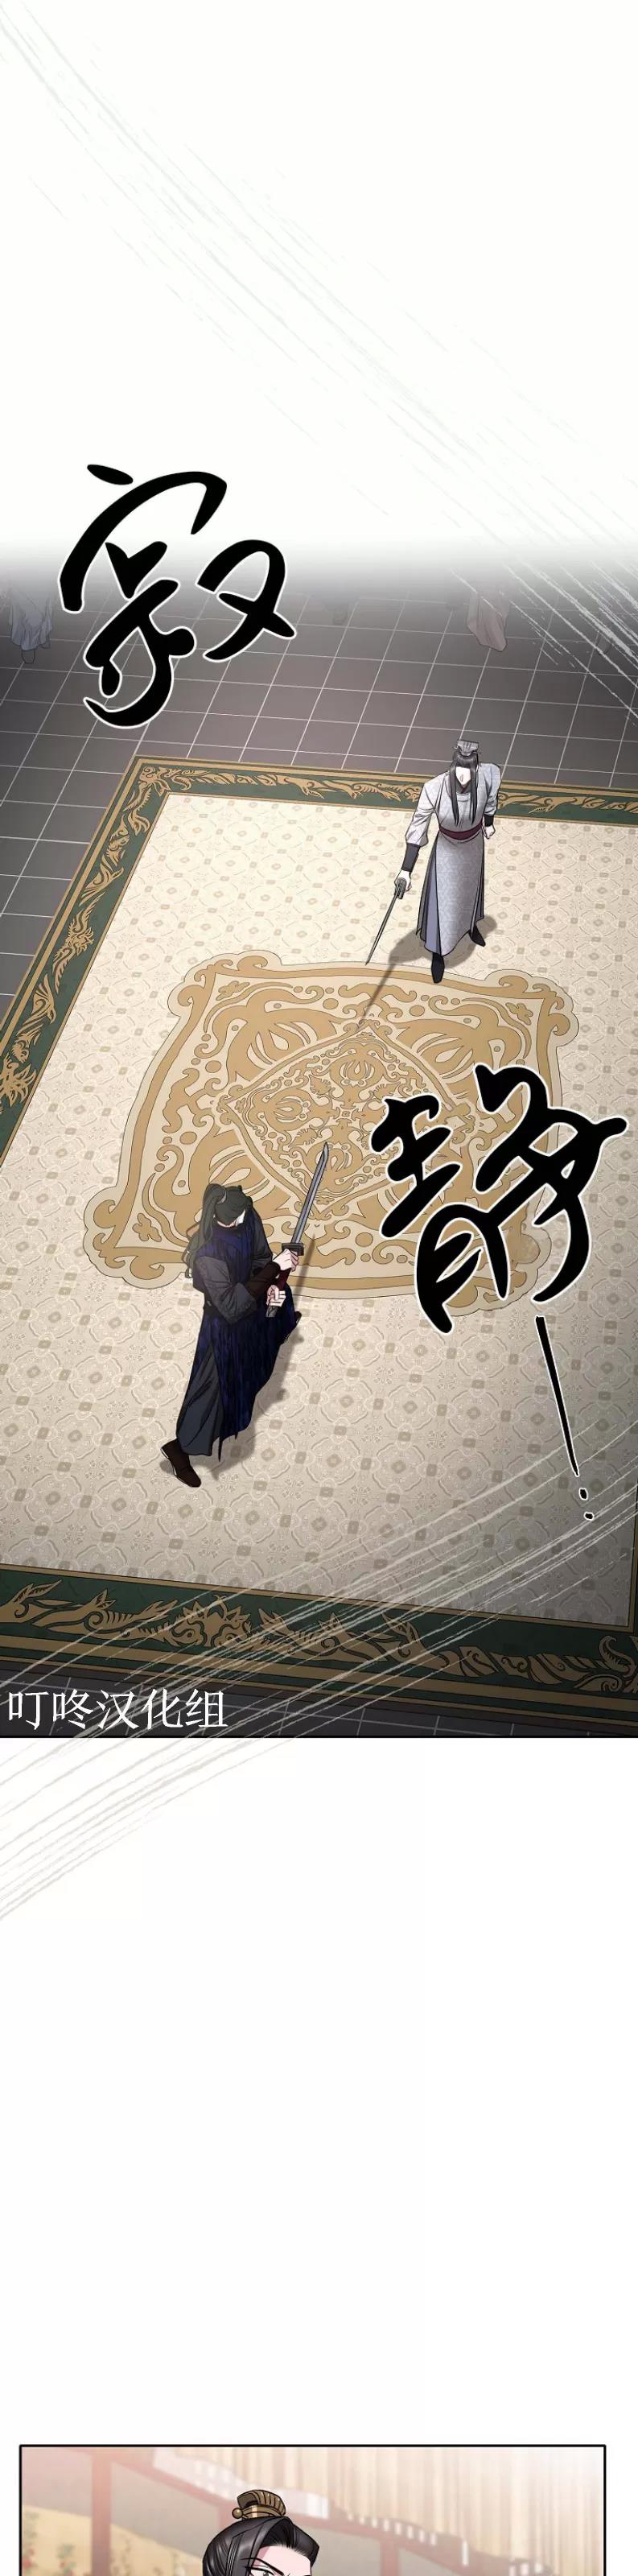 寂
静…
叮咚汉化组